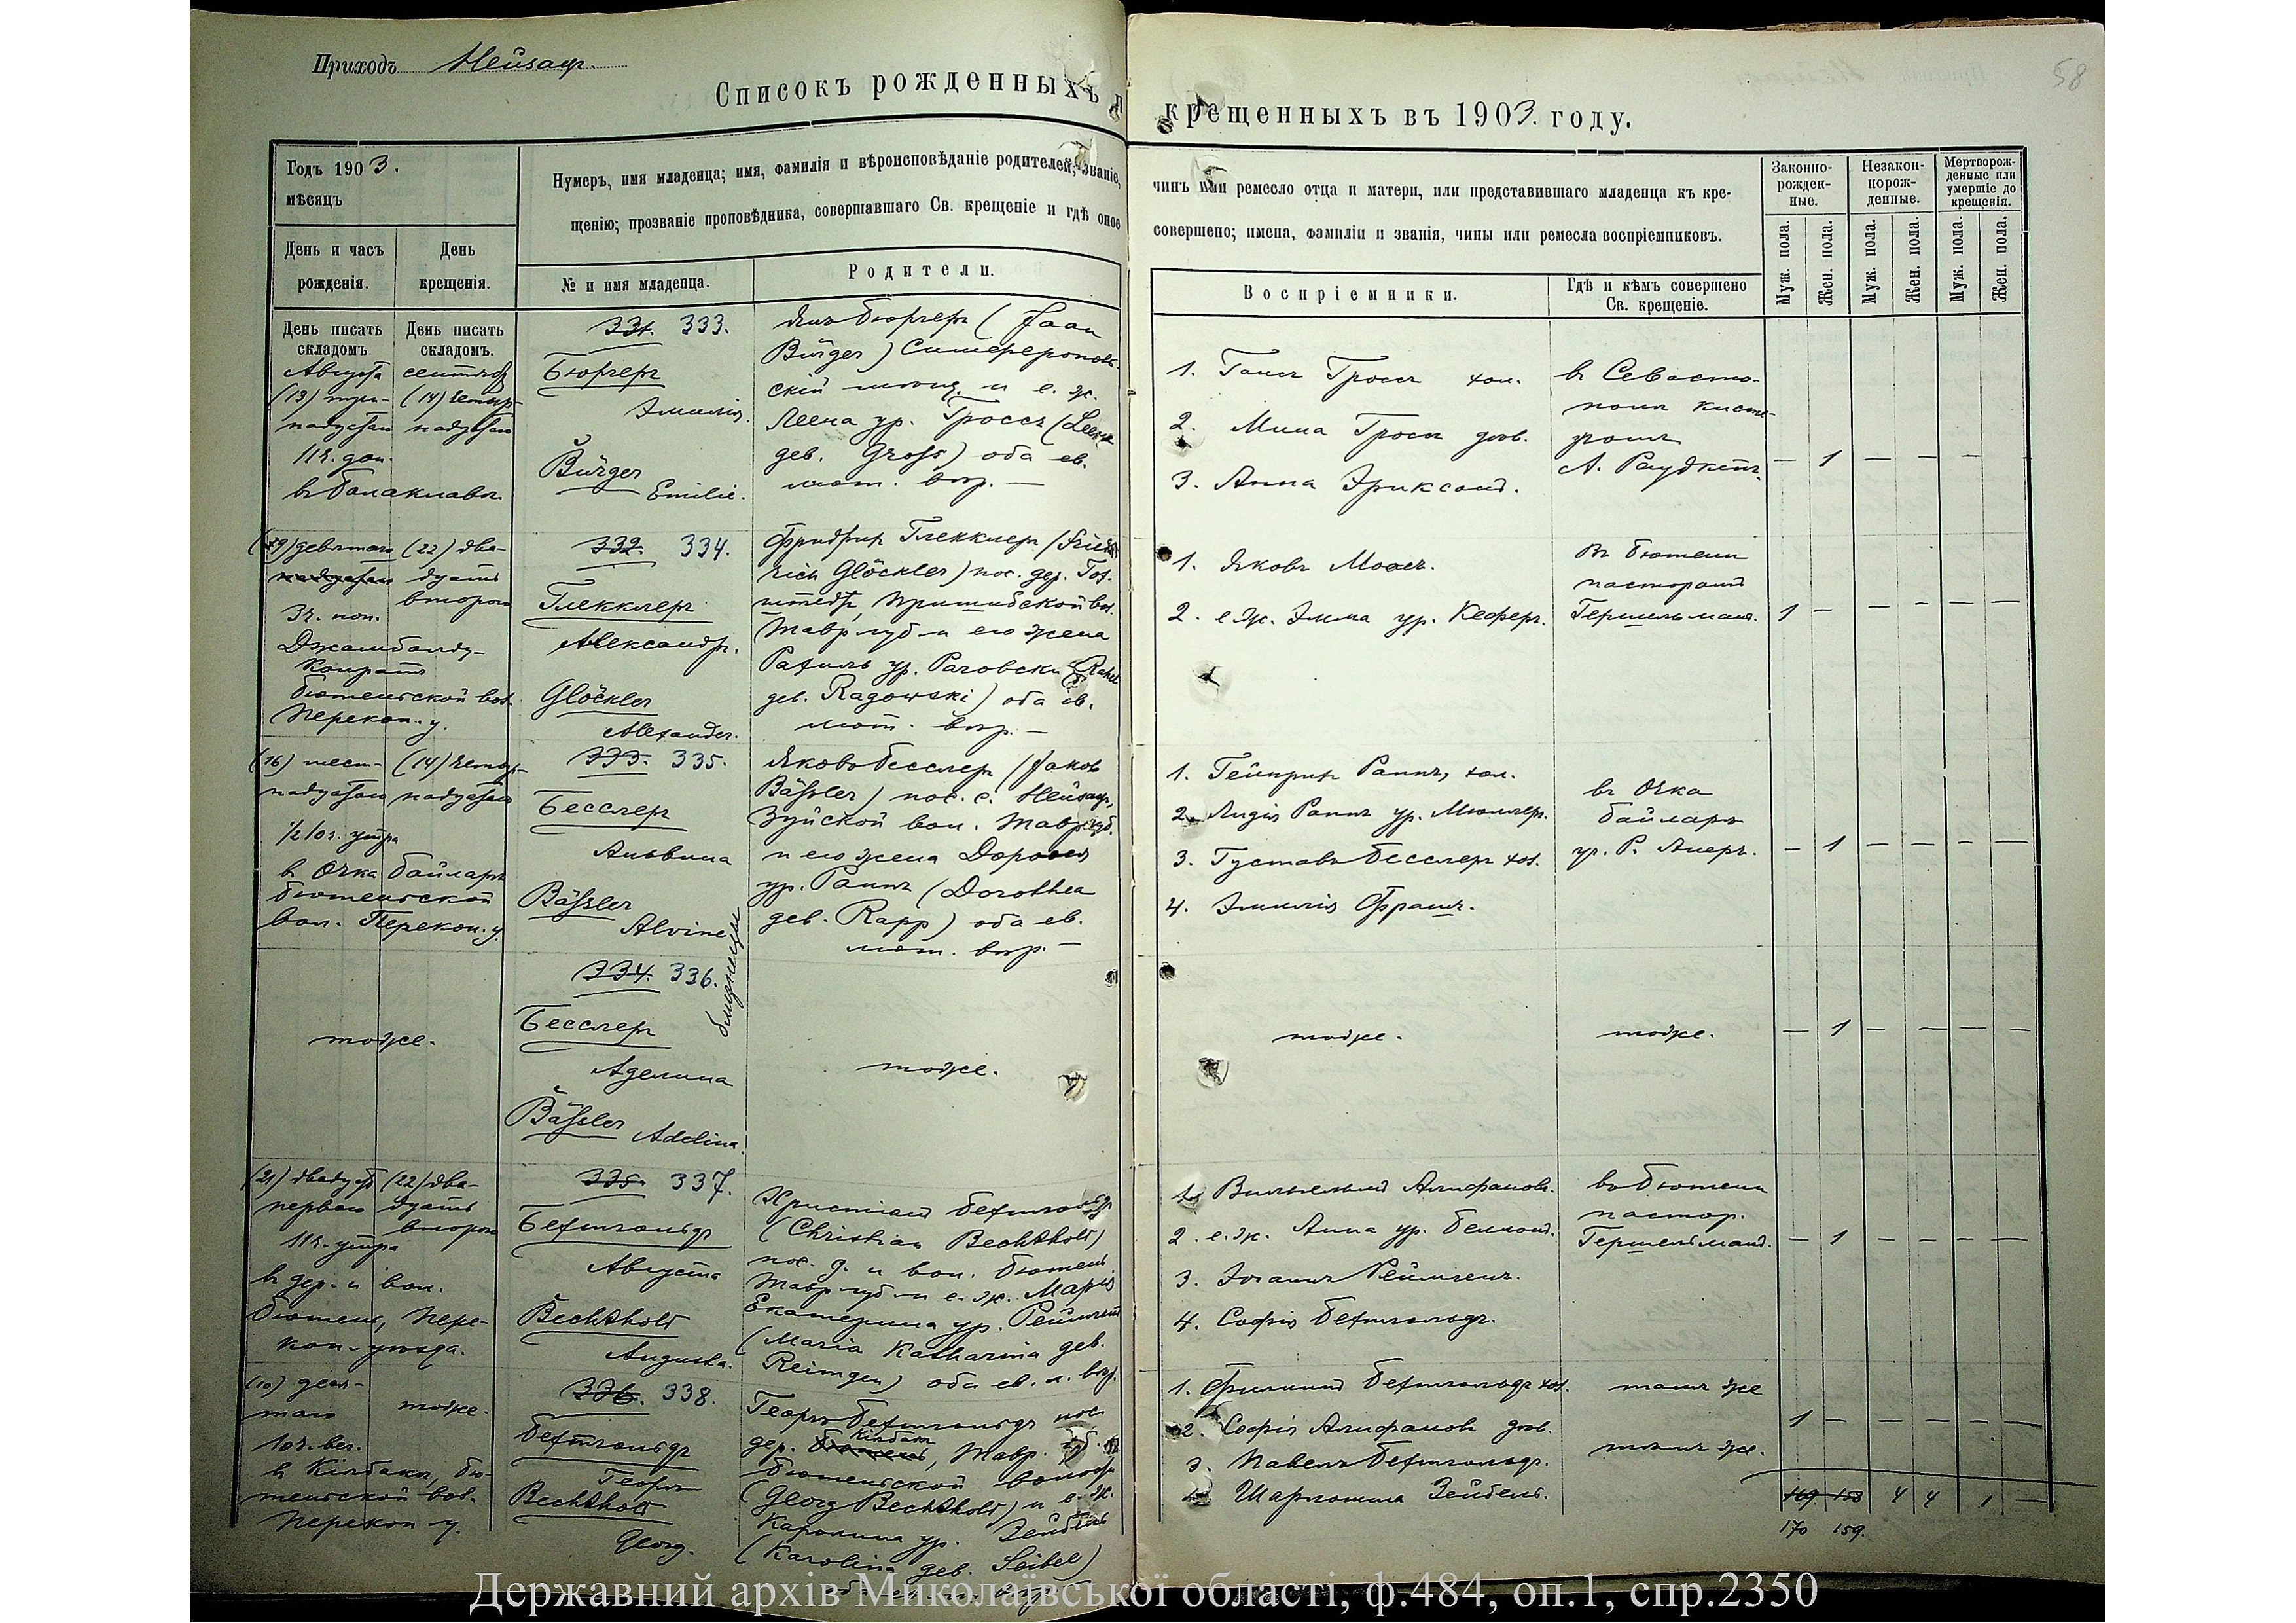 Приходъ Нейзац.
58
Списокъ рожденныхъ и крещенныхъ въ 1903. году.
Годъ 1903.
мѣсяцъ
День и часъ рожденія.
День крещенія.
Нумеръ, имя младенца; имя, фамилія и вѣроисповѣданіе родителей, званіе,
чинъ или ремесло отца и матери, или представившаго младенца къ кре-
щенію; прозваніе проповѣдника, совершавшаго Св. крещеніе и гдѣ оное
совершено; имена, фамиліи и званія, чины или ремесла воспріемниковъ.
№ и имя младенца.
Родители.
Воспріемники.
Гдѣ и кѣмъ совершено
Св. крещеніе.
Законно-
рожден-
ные.
Незакон-
норож-
денные.
Мертворож-
денные или
умершіе до
крещенія.
Муж. пола.
Жен. пола.
Муж. пола.
Жен. пола.
Муж. пола.
Жен. пола.
День писать
складомъ.
День писать
складомъ.
Августа
(13) три-
надцатаго
11ч. дня
в Балаклавѣ
сентября
(14) четыр-
надцатаго
331. 333.
Бюргеръ
Эмилія.
Bürger
Emilie.
Янъ Бюргеръ (Jaan
Bürger) Симферополь-
скій мѣщ. и е. ж.
Леена ур. Гроссъ (Leena
geb. Gross) оба ев.
лют. вѣр. —
1. Гансъ Гроссъ хол.
2. Мина Гроссъ дѣв.
3. Анна Эриксонъ.
в Севасто-
полѣ кисте-
ромъ
А. Раудкепъ.
— 1 — — — —
(9) девятаго
3ч. поп.
Джамбалды-
Конратъ
Бютеньской вол.
Перекоп. у.
(22) два-
дцать
второго
332. 334.
Глекклеръ
Александръ.
Glöckler
Alexander.
Фридрихъ Глекклеръ (Fried-
rich Glöckler) пос. дер. Гох-
штедтъ, Пришибской вол.
Тавр. губ. и его жена
Рахиль ур. Раговски (Rahel
geb. Ragowski) оба ев.
лют. вѣр. —
1. Яковъ Моосъ.
2. е. ж. Эмма ур. Кеферъ.
въ Бютени
пасторомъ
Гершельманъ.
1 — — — — —
(16) шест-
надцатаго
1/2 10ч. утра
в Очка байларъ
Бютеньской
вол. Перекоп. у.
(14) четыр-
надцатаго
333. 335.
Бесслеръ
Альвина
Bässler
Alvine
близнецы
Яковъ Бесслеръ (Jakob
Bässler) пос. с. Нейзацъ,
Зуйской вол. Тавр. губ.
и его жена Доротея
ур. Раппъ (Dorothea
geb. Rapp) оба ев.
лют. вѣр. —
1. Гейнрихъ Раппъ, хол.
2. Лидія Раппъ ур. Мюллеръ.
3. Густавъ Бесслеръ хол.
4. Эмилія Франкъ.
въ Очка
байларъ
уч. Р. Анеръ.
— 1 — — — —
тоже.
334. 336.
Бесслеръ
Аделина
Bässler
Adelina.
тоже.
тоже.
тоже.
— 1 — — — —
(21) двадцать
перваго
11ч. утра
в дер. и вол.
Бютень, Пере-
коп. уѣзда.
(22) два-
дцать
второго
335. 337.
Бехтгольдъ
Августа
Bechthold
Augusta.
Христіанъ Бехтгольдъ
(Christian Bechthold)
пос. д. и вол. Бютень
Тавр. губ. и е. ж. Марія
Екатерина ур. Реймгенъ
(Maria Katharina geb.
Reimgen) оба ев. л. вѣр.
1. Вильгельмъ Алифановъ.
2. е. ж. Анна ур. Белконъ.
3. Іоганнъ Реймгенъ.
4. Софія Бехтгольдъ.
въ Бютени
пастор.
Гершельманъ.
— 1 — — — —
(10) деся-
таго
10ч. веч.
в Кілбаки, Бю-
теньской вол.
Перекоп. у.
тоже.
336. 338.
Бехтгольдъ
Георгъ
Bechthold
Georg.
Георгъ Бехтгольдъ пос.
дер. Бютень, Кілбаки Тавр. губ.
Бютеньской волости
(Georg Bechthold) и е. ж.
Каролина ур. Зейбель
(Karolina geb. Seibel)
1. Филиппъ Бехтгольдъ хол.
2. Софія Алифановъ дѣв.
3. Павелъ Бехтгольдъ.
4. Шарлотта Зейбель.
тамъ же
тѣмъ же.
1 — — — — —
169 158 4 4 1 —
170 159.
Державний архів Миколаївської області, ф.484, оп.1, спр.2350